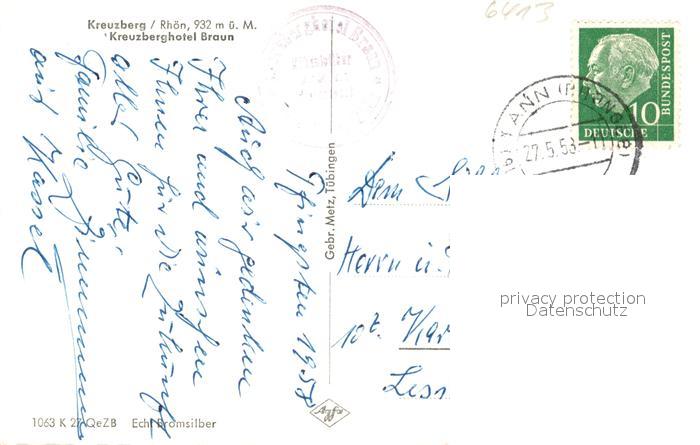 Kreuzberg / Rhön, 932 m ü. M.
Kreuzberghotel Braun
6413
Pfingsten 1958
Auch wir gedenken
Ihrer und wünschen
Ihnen für die Zukunft
alles Gute.
Familie Zimmermann
aus Kassel
Gebr. Metz, Tübingen
10
DEUTSCHE
BUNDESPOST
TANN (RHÖNGEB)
27.5.58
Dem
Herrn u.
10t. Kar
Less
privacy protection
Datenschutz
1063 K 27 QeZB Echt Bromsilber